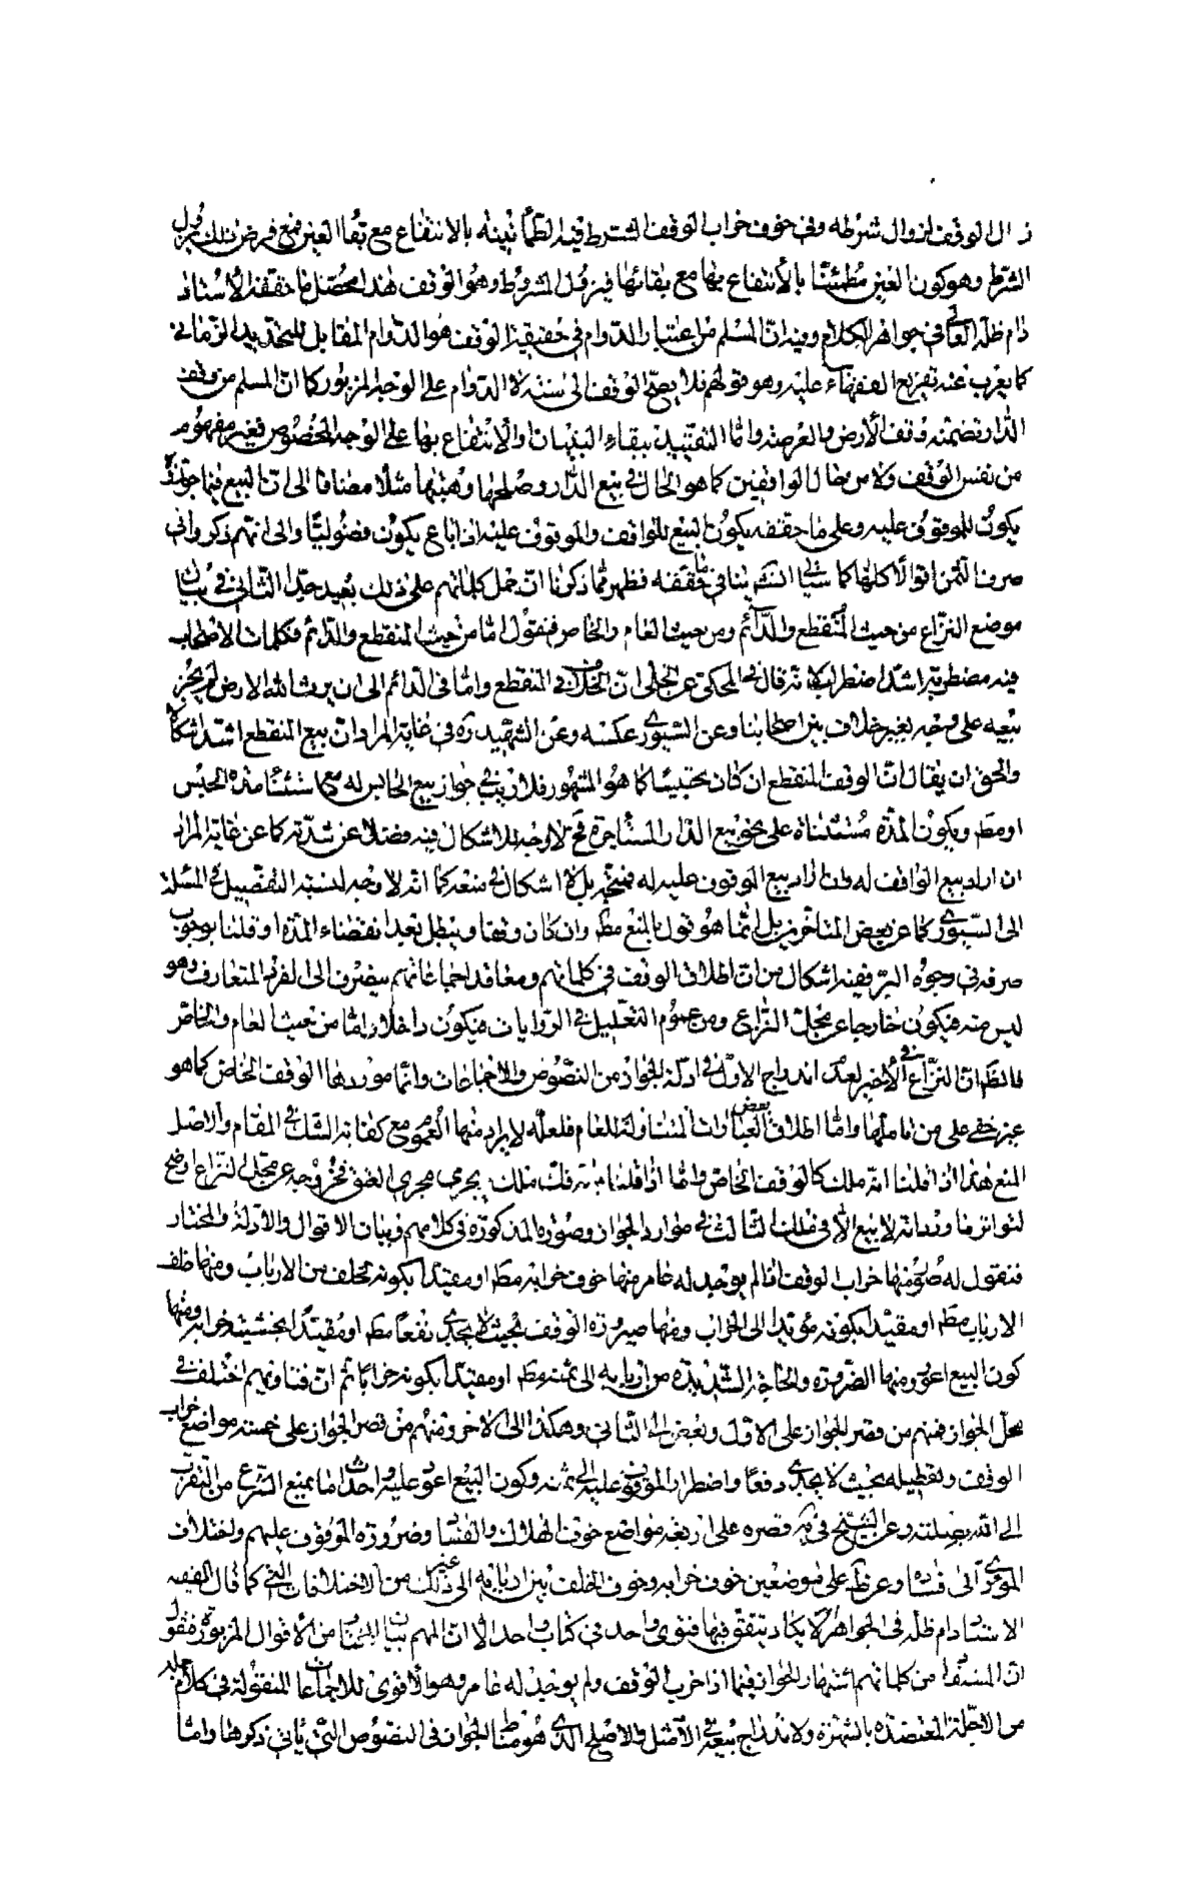 زال الوقف لزوال شرطه وفي خوف خراب الوقف الشرط فيه بالانتفاع مع بقاء العين فمع فرض ذلك يزول
الشرط وهو كون العين مطمئنا بالانتفاع بها مع بقائها فيزول المشروط وهو الوقف هذا محصل ما حققه الأستاذ
دام ظله العالي في جواهر الكلام وفيه ان المسلم من اعتبار الدوام في حقيقة الوقف هو الدوام المقابل للتحديد الزماني
كما يعرب عنه تفريع الفقهاء عليه وهو قولهم فلا يصح الوقف الى سنة لا الدوام على الوجه المزبور كما ان المسلم من وقف
الدار تضمنه وقف الأرض والعرصة واما التقييد ببقاء البنيان والانتفاع بها على الوجه المخصوص فغير مفهوم
من نفس الوقف ولا من حال الواقفين كما هو الحال في بيع الدار وصلحها وهبتها مثلا مضافا الى ان البيع فيما جوزوه
يكون للموقوف عليه وعلى ما حققه يكون البيع للواقف والموقوف عليه اذا باع يكون فضوليا والى انهم ذكروا في
صرف الثمن اقوالا كلها كما سيأتي انش ينافي ما حققه فظهر مما ذكرنا ان حمل كلماتهم على ذلك بعيد جدا الثاني في بيان
موضع النزاع من حيث المنقطع والدائم ومن حيث العام والخاص فنقول اما من حيث المنقطع والدائم فكلمات الأصحاب
فيه مضطربة اشد اضطراب لانه قال في المحكي عن الحلي ان الخلاف في المنقطع واما في الدائم الى ان يرث الله الارض لم يجز
بيعه على وجه بغير خلاف بين اصحابنا وعن السبوري عكسه وعن الشهيد ره في غاية المراد ان بيع المنقطع اشد اشكالا
والحق ان يقال ان الوقف المنقطع ان كان تحبيسا كما هو المشهور فلا ريب في جواز بيع الحابس له مع استثناء مدة الحبس
او مط ويكون المدة مستثناة على نحو بيع الدار المستأجرة فح لا وجه للاشكال فيه فضلا عن شدته كما عن غاية المراد
ان اراد بيع الواقف له وان اراد بيع الموقوف عليه له فمتجه بل لا اشكال في منعه كما انه لا وجه لنسبة التفصيل في المسئلة
الى السبوري كما عن بعض المتأخرين بل انما هو قول بالمنع مط وان كان وقفا ويبطل بعد انقضاء المدة او قلنا بوجوب
صرفه في وجوه البر ففيه اشكال من ان اطلاق الوقف في كلماتهم ومعاقد اجماعاتهم ينصرف الى الفرد المتعارف وهو
ليس منه فيكون خارجا عن محل النزاع ومن عموم التعليل في الروايات فيكون داخلا واما من حيث العام والخاص
فالظ ان النزاع في الأخير لعدم اندراج الاول في ادلة الجواز من النصوص والاجماعات وانما موردها الوقف الخاص كما هو
غير خفي على من تاملها واما اطلاق بعض العبارات المتناولة للعام فلعله لا يراد منها العموم مع كفاية الشك في المقام والاصل
المنع هذا اذا قلنا انه ملك كالوقف الخاص واما اذا قلنا بانه فك ملك يجري مجرى العتق فخروجه عن محل النزاع اوضح
لتواتر ما ورد انه لا بيع الا في ملك الثالث في موارد الجواز وصوره المذكورة في كلامهم وبيان الاقوال والأدلة والمختار
فنقول له صور منها خراب الوقف اذا لم يوجد له عامر منها خوف خرابه مط او مقيدا بكونه لخلف من الارباب ومنها خلف
الارباب مط او مقيدا بكونه مؤديا الى الخراب ومنها صيرورة الوقف بحيث لا يجدي نفعا مط او مقيدا بخشية خرابه ومنها
كون البيع اعود ومنها الضرورة والحاجة الشديدة من اربابه الى ثمنه مط او مقيدا بكونه خرابا ثم ان فتاويهم اختلف في
محل الجواز فمنهم من قصر الجواز على الاول وبعض الى الثاني وهكذا الى الاخر ومنهم من قصر الجواز على خمسة مواضع خراب
الوقف وتعطيله بحيث لا يجدي دفعا واضطرار الموقوف عليه الى ثمنه وكون البيع اعود عليه واحداث ما يمنع الشرع من التقرب
الى الله بصلته وعن الشيخ في قصره على اربعة مواضع خوف الهلاك والفساد وضرورة الموقوف عليهم واختلاف
المؤدي الى فساد وعن على موضعين خوف خرابه وخوف الخلف بين اربابه الى غير ذلك من الاختلافات التي كما قال الفقيه
الاستاد دام ظله في الجواهر لا يكاد يتفق فيها فتوى واحد في كتاب واحد الا ان المهم بيان من الاقوال المزبورة فنقول
ان المستفاد من كلماتهم اشتهار الجواز فيما اذا خرب الوقف ولم يوجد له عامر وهو الاقوى للاجماعات المنقولة في كلام جملة
من الاجلة المعتضدة بالشهرة ولاندراج بيعه في الأصلح الذي هو مناط الجواز في النصوص التي يأتي ذكرها واما